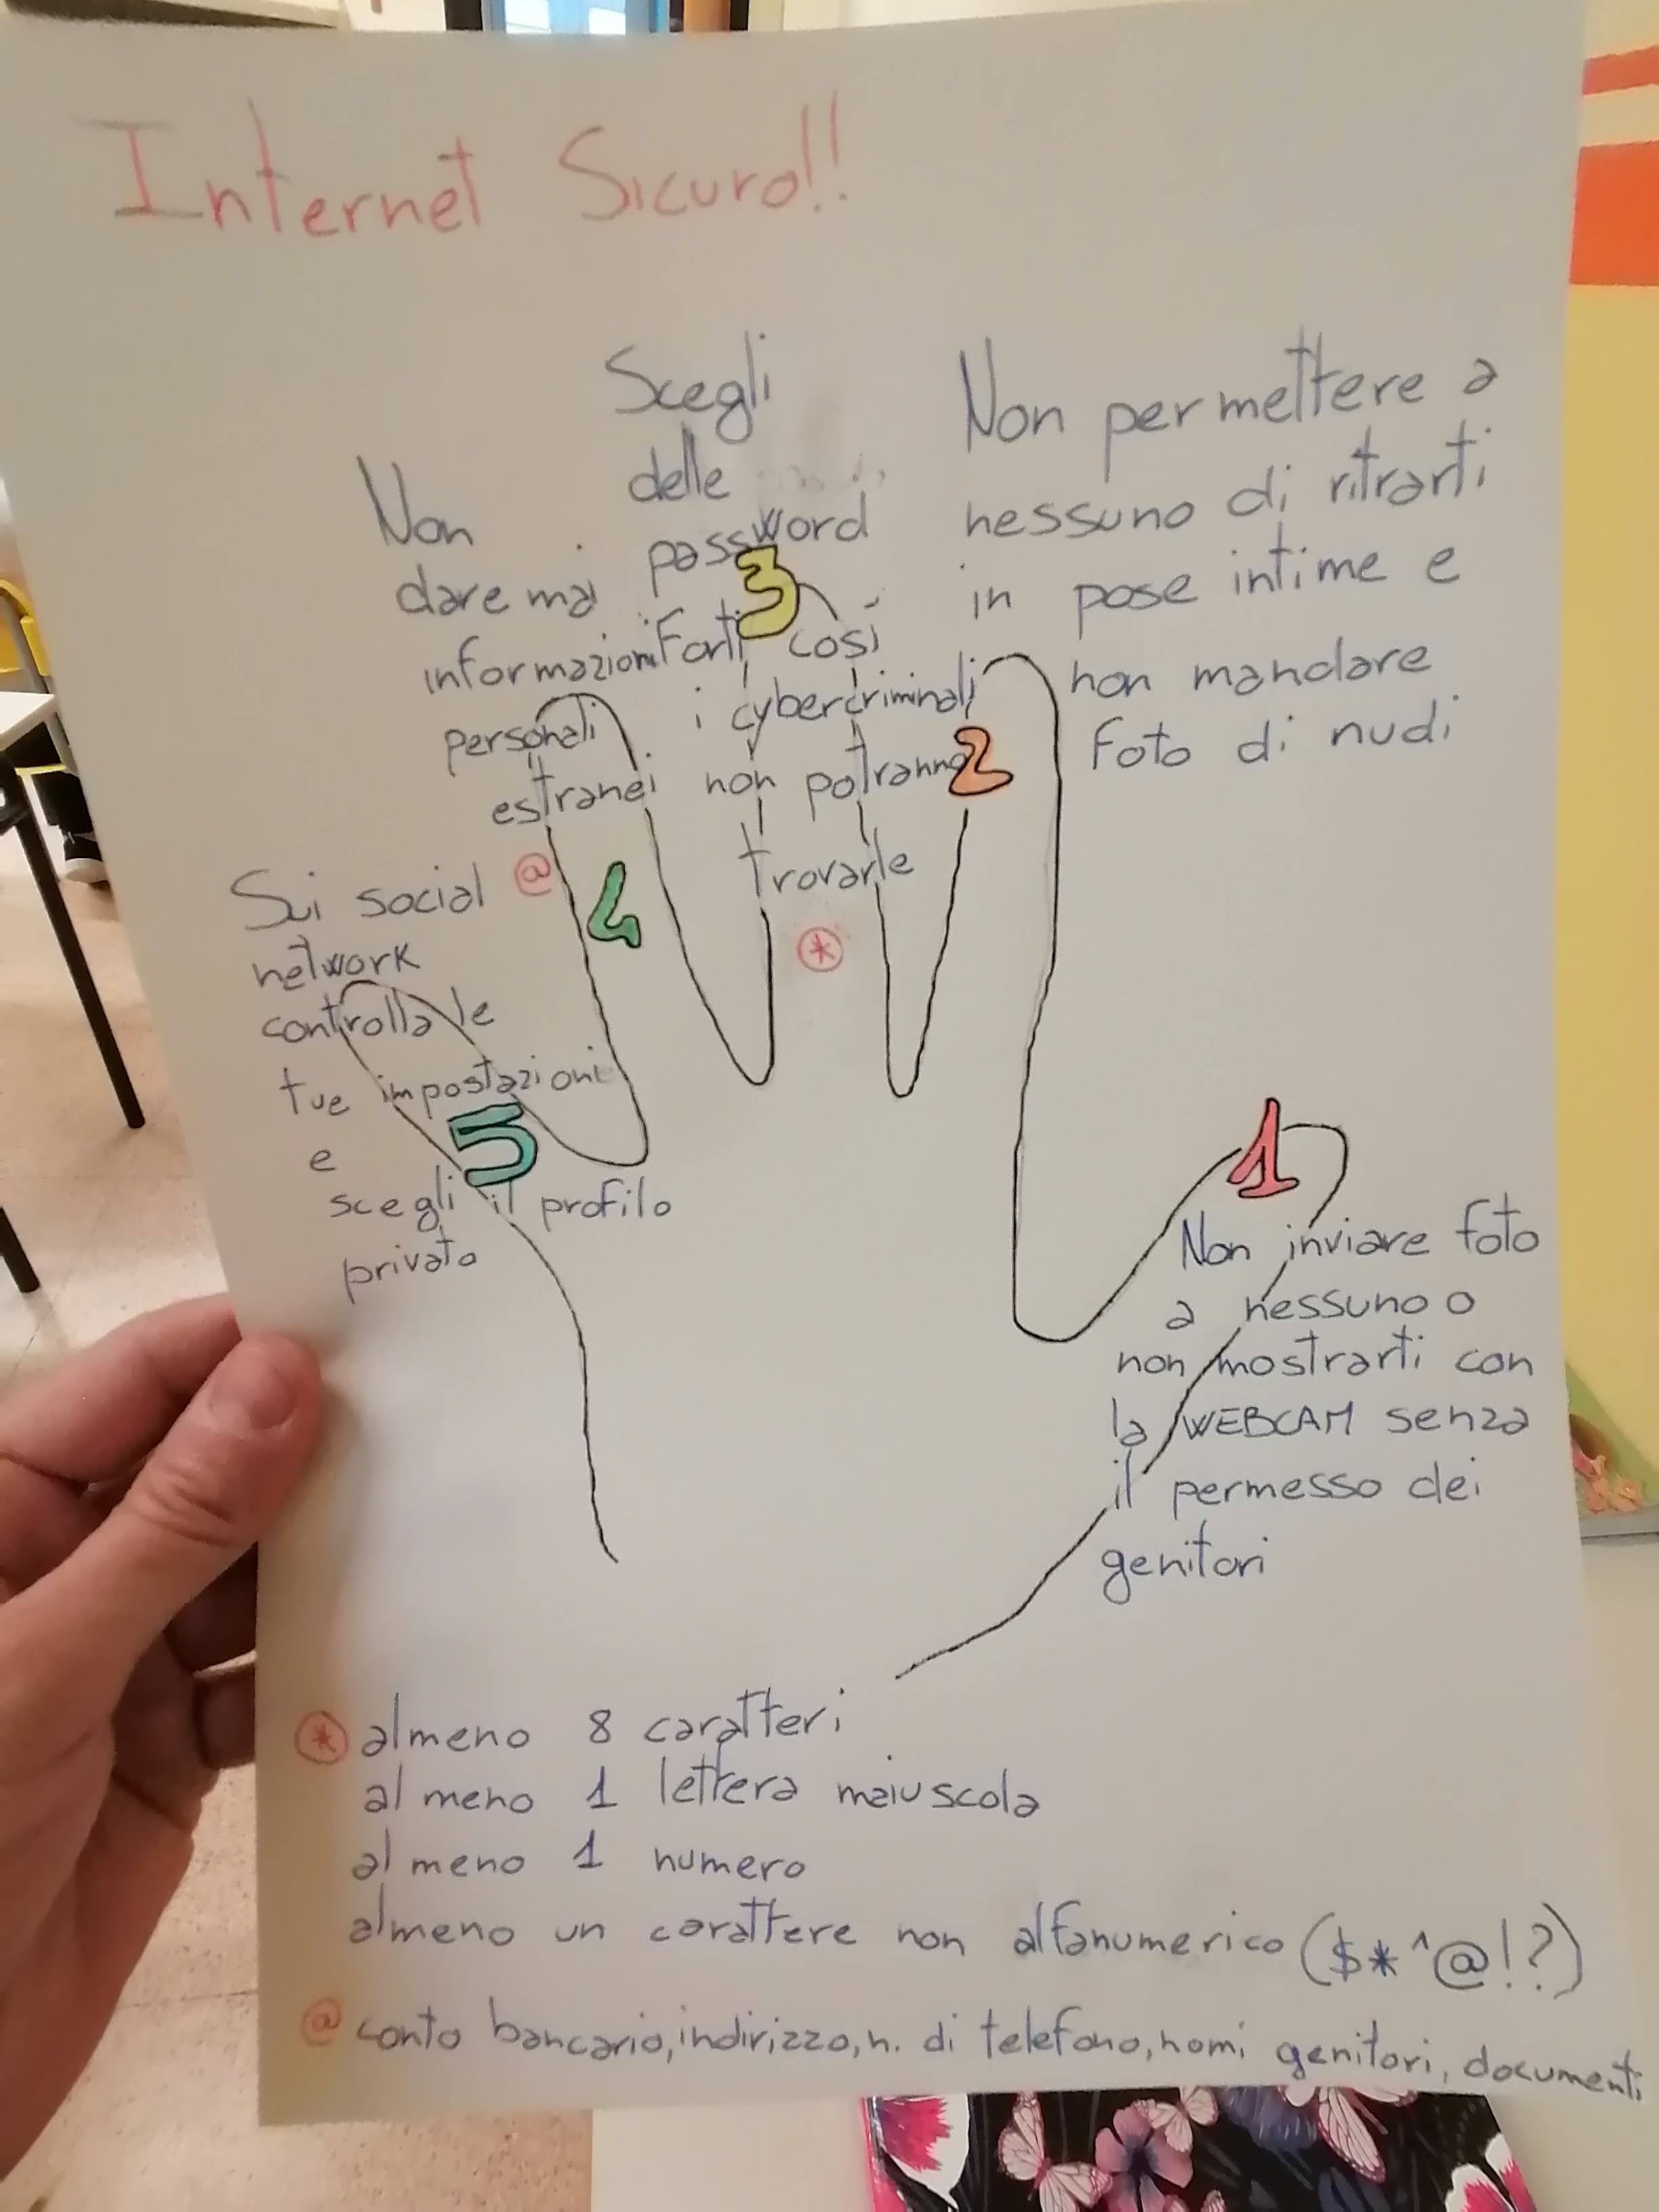 Internet Sicuro!!
Scegli
delle
password
3
Forti così
i cybercriminali
non potranno
trovarle
*
Non permettere a
nessuno di ritrarti
in pose intime e
non mandare
foto di nudi
2
Non
dare mai
informazioni
personali
estranei
@
4
Sui social
network
controlla le
tue impostazioni
e
5
scegli il profilo
privato
1
Non inviare foto
a nessuno o
non mostrarti con
la WEBCAM senza
il permesso dei
genitori
* almeno 8 caratteri
almeno 1 lettera maiuscola
almeno 1 numero
almeno un carattere non alfanumerico ($*^@!?)
@ conto bancario, indirizzo, n. di telefono, nomi genitori, documenti